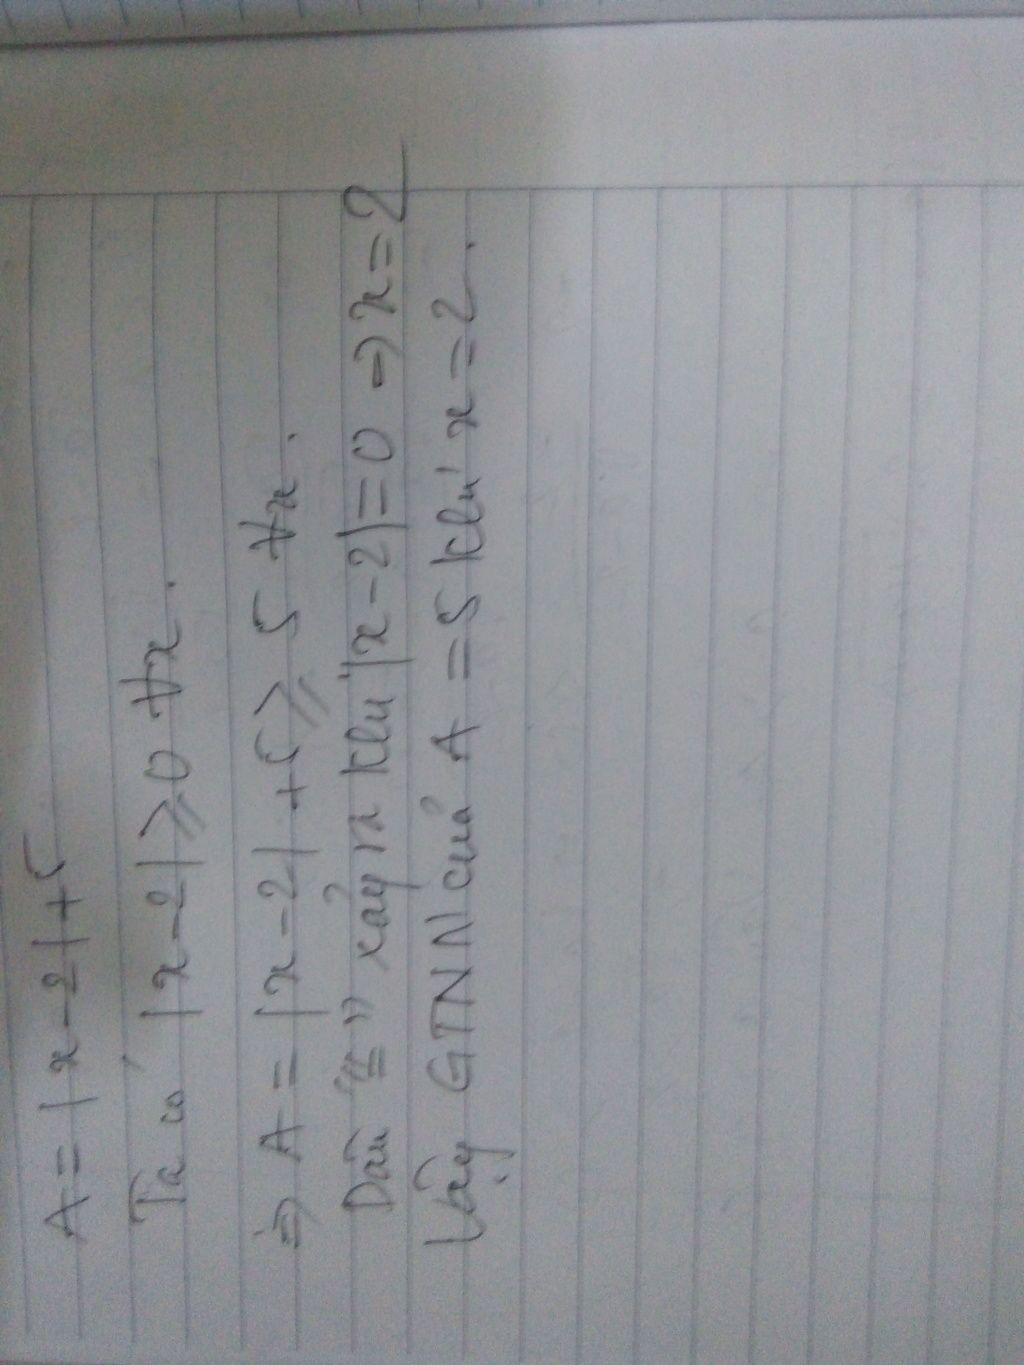 A = |x - 2| + 5
Ta có |x - 2| ⩾ 0 ∀x.
⇒ A = |x - 2| + 5 ⩾ 5 ∀x.
Dấu "=" xảy ra khi |x - 2| = 0 → x = 2
Vậy GTNN của A = 5 khi x = 2.